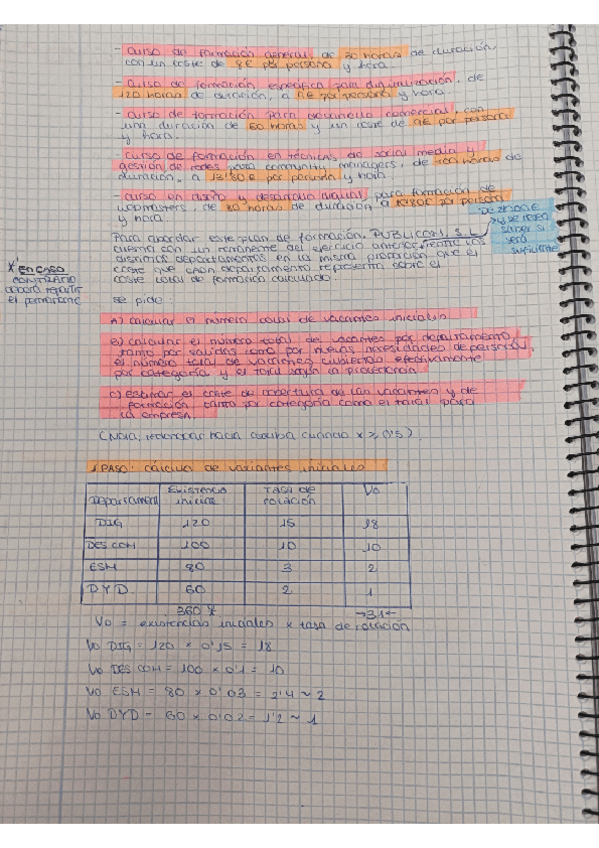 - curso de formación general, de 30 horas de duración,
con un coste de 8€ por persona y hora.
- curso de formación específica para dinamización, de
120 horas de duración, a por persona y hora
- curso de formación para desarrollo comercial, con
una duración de 60 horas y un coste de 9€ por persona
y hora.
- curso de formación en técnicas de social media y
gestión de redes para community managers, de 100 horas de
duración, a 13'50€ por persona y hora
- curso en diseño y desarrollo para formación de
webmasters, de 80 horas de duración a por persona
y hora.
Para abordar este plan de formación, PUBLICOM, S.L
cuenta con un remanente del ejercicio anterior, entre los
distintos departamentos en la misma proporción que el
coste que cada departamento representa sobre el
coste total de formación calculado.
De donde
y se desea
saber si
será
suficiente
* EN CASO
CONTRARIO
habrá repartir
el permanente
se pide:
A) calcular el número total de vacantes iniciales
B) calcular el número total de vacantes por departamento,
tanto por salidas como por nuevas necesidades de personal,
el número total de vacantes cubiertas efectivamente
por categoría y el total según la procedencia
C) estimar el coste de cobertura de las vacantes y de
formación, tanto por categoría como el total para
la empresa.
(Nota: redondear hacia arriba cuando x ≥ 0'5)
1 PASO: cálculo de variantes iniciales
Departament Existencia inicial Tasa de rotación Vo
DIG 120 15 18
DES COM 100 10 10
ESM 80 3 2
DYD 60 2 1
360 * →31←
Vo = existencias iniciales × tasa de rotación
Vo DIG = 120 × 0'15 = 18
Vo DES COM = 100 × 0'1 = 10
Vo ESM = 80 × 0'03 = 2'4 ~ 2
Vo DYD = 60 × 0'02 = 1'2 ~ 1